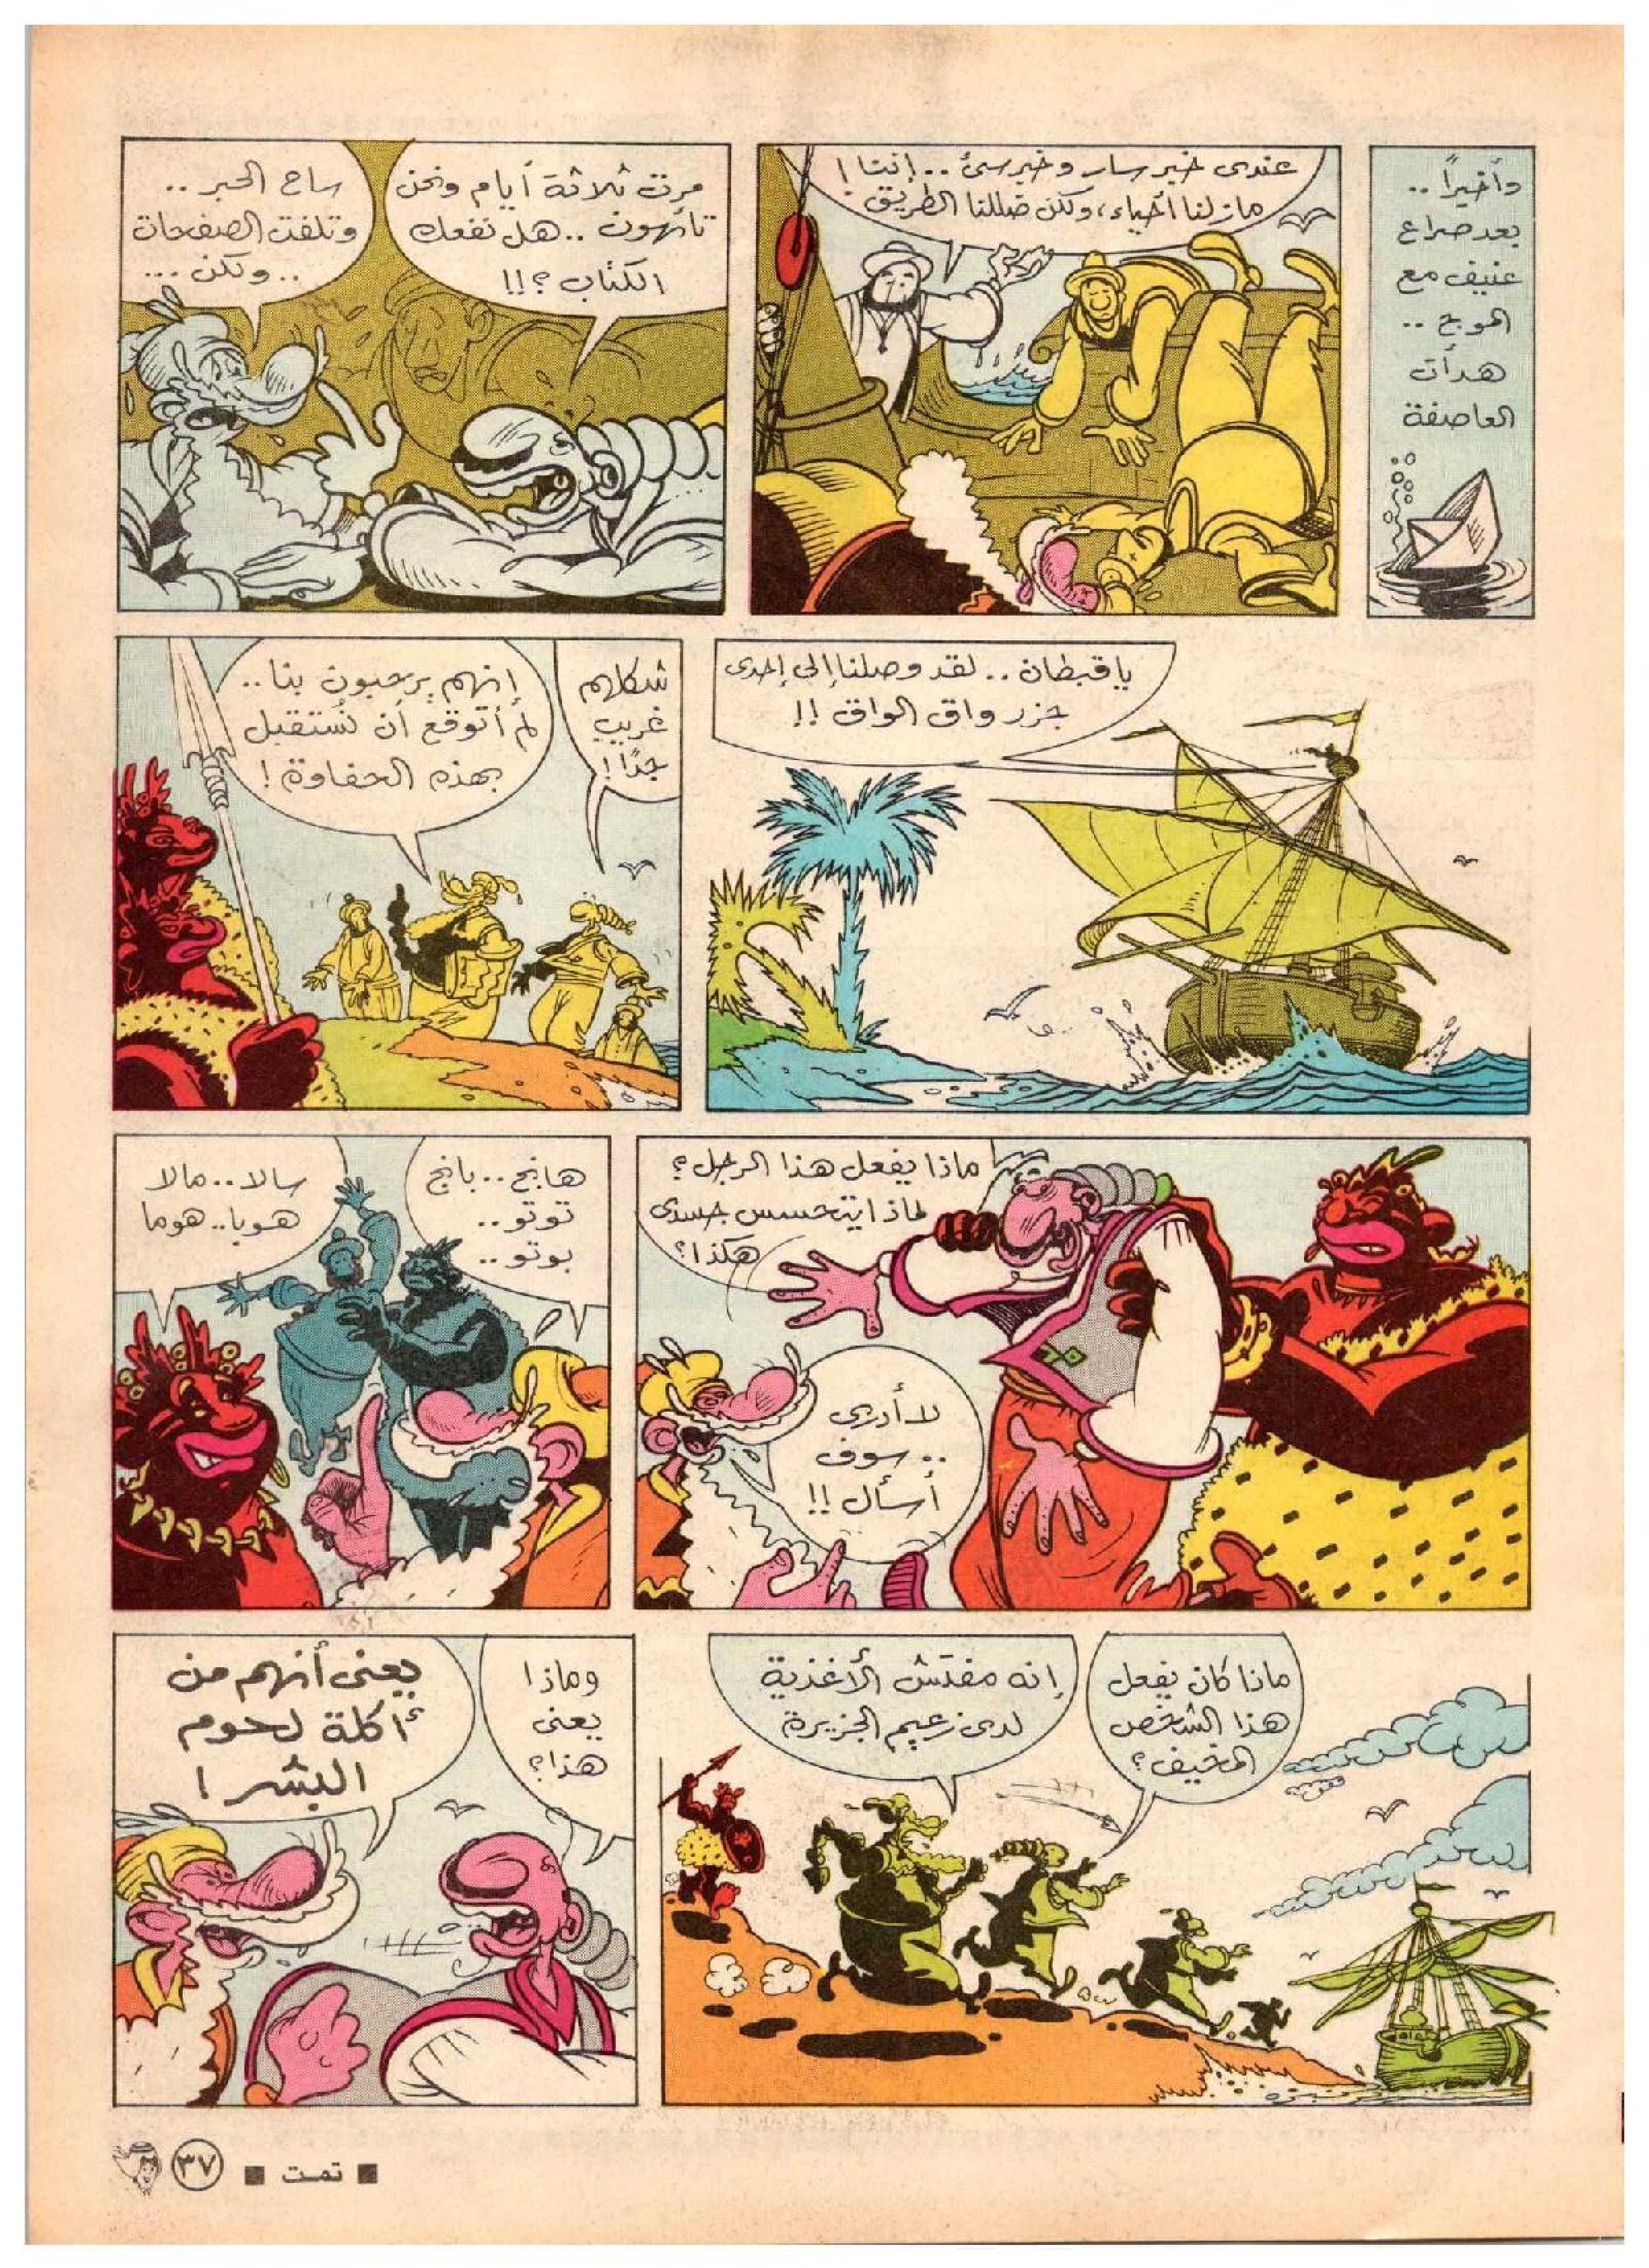 وأخيراً ..
بعد صراع
عنيف مع
الموج ..
هدأت
العاصفة
عندى خبر سار وخبر سىء .. إننا !
مازلنا أحياء، ولكن ضللنا الطريق !
مرت ثلاثة أيام ونحن
تائهون .. هل نفعك
الكتاب ؟!!
ساح الحبر ..
وتلفت الصفحات
.. ولكن ...
يا قبطان .. لقد وصلنا إلى إحدى
جزر واق الواق !!
شكلهم
غريب
جدًا !
إنهم يرحبون بنا ..
لم أتوقع أن نُستقبل
بهذه الحفاوة !
ماذا يفعل هذا الرجل ؟
لماذا يتحسس جسدى
هكذا ؟
لا أدرى
.. سوف
أسأل !!
هانج .. بانج
توتو ..
بوتو ..
سالا .. مالا
هوبا .. هوما
ماذا كان يفعل
هذا الشخص
المخيف ؟
إنه مفتش الأغذية
لدى زعيم الجزيرة
وماذا
يعنى
هذا ؟
يعنى أنهم من
أكلة لحوم
البشر !
■ تمت ■
٣٧